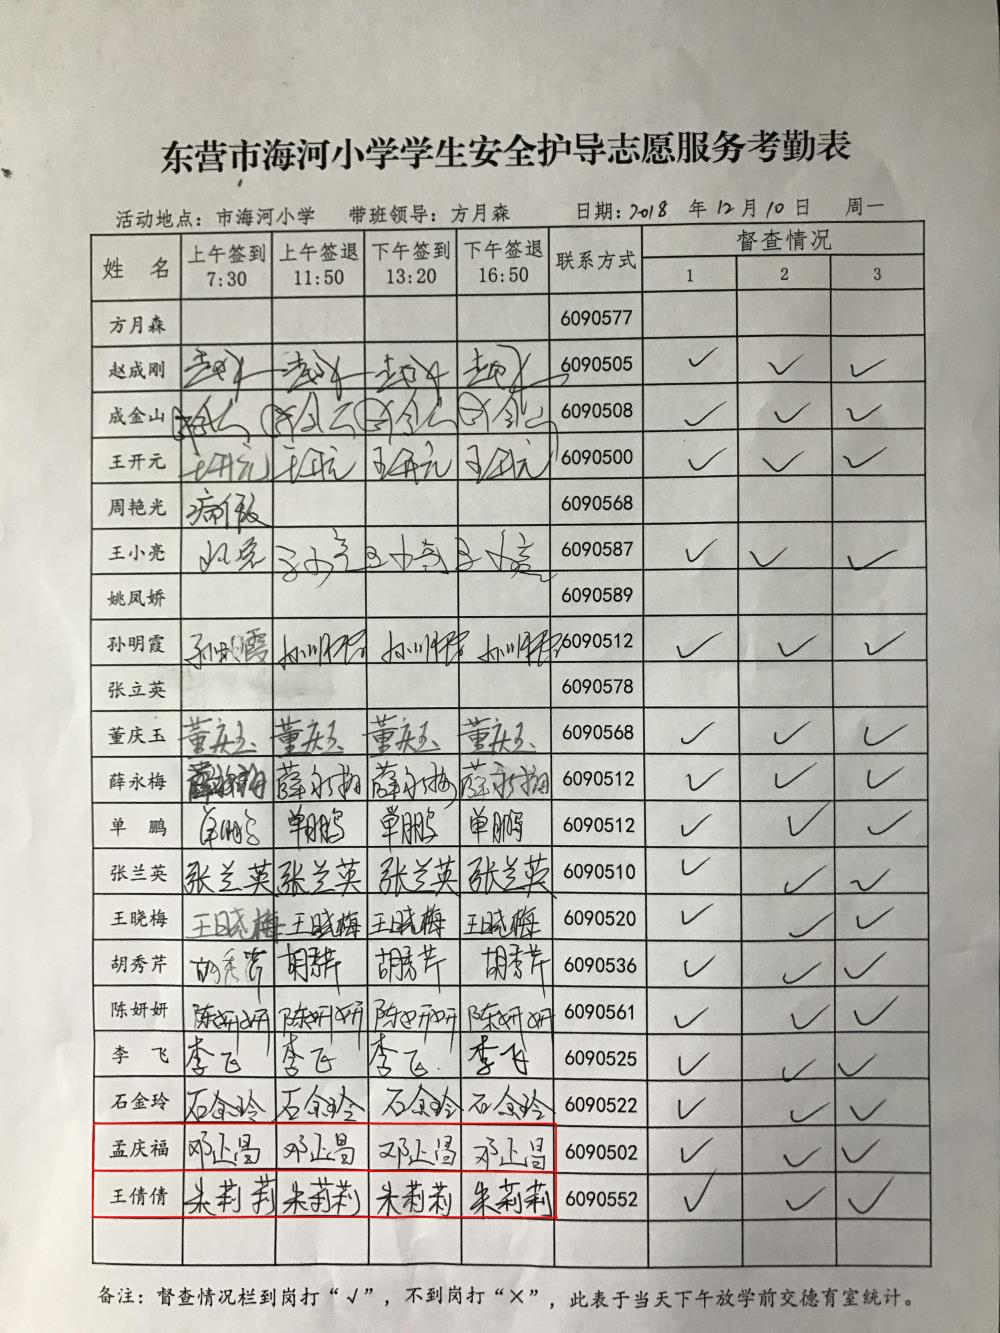 东营市海河小学学生安全护导志愿服务考勤表
活动地点：市海河小学 带班领导：方月森 日期：2018 年 12 月 10 日 周一
姓 名 上午签到 7:30 上午签退 11:50 下午签到 13:20 下午签退 16:50 联系方式 督查情况
1 2 3
方月森 6090577
赵成刚 赵成刚 赵成刚 赵成刚 赵成刚 6090505 ✓ ✓ ✓
成金山 成金山 成金山 成金山 成金山 6090508 ✓ ✓ ✓
王开元 王开元 王开元 王开元 王开元 6090500 ✓ ✓ ✓
周艳光 病假 6090568
王小亮 王小亮 王小亮 王小亮 王小亮 6090587 ✓ ✓ ✓
姚凤娇 6090589
孙明霞 孙明霞 孙明霞 孙明霞 孙明霞 6090512 ✓ ✓ ✓
张立英 6090578
董庆玉 董庆玉 董庆玉 董庆玉 董庆玉 6090568 ✓ ✓ ✓
薛永梅 薛永梅 薛永梅 薛永梅 薛永梅 6090512 ✓ ✓ ✓
单 鹏 单鹏 单鹏 单鹏 单鹏 6090512 ✓ ✓ ✓
张兰英 张兰英 张兰英 张兰英 张兰英 6090510 ✓ ✓ ✓
王晓梅 王晓梅 王晓梅 王晓梅 王晓梅 6090520 ✓ ✓ ✓
胡秀芹 胡秀芹 胡秀芹 胡秀芹 胡秀芹 6090536 ✓ ✓ ✓
陈妍妍 陈妍妍 陈妍妍 陈妍妍 陈妍妍 6090561 ✓ ✓ ✓
李 飞 李飞 李飞 李飞 李飞 6090525 ✓ ✓ ✓
石金玲 石金玲 石金玲 石金玲 石金玲 6090522 ✓ ✓ ✓
孟庆福 邓正昌 邓正昌 邓正昌 邓正昌 6090502 ✓ ✓ ✓
王倩倩 朱莉莉 朱莉莉 朱莉莉 朱莉莉 6090552 ✓ ✓ ✓
备注：督查情况栏到岗打“√”，不到岗打“×”，此表于当天下午放学前交德育室统计。